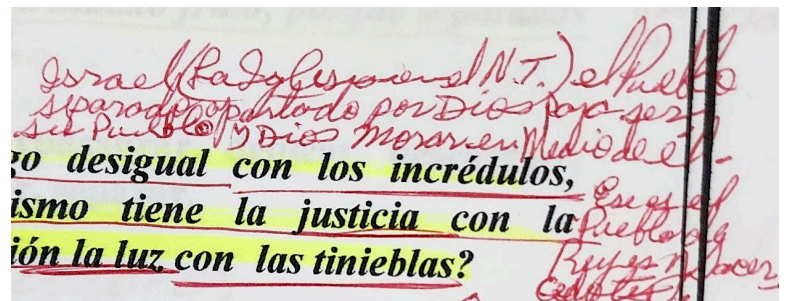 Israel (La Iglesia en el N.T.) el Pueblo
separado, apartado por Dios para ser
su Pueblo y Dios Morar en Medio de él.
go desigual con los incrédulos,
Ese es el
ismo tiene la justicia con la
Pueblo de
ión la luz con las tinieblas?
Reyes y sacer
dotes